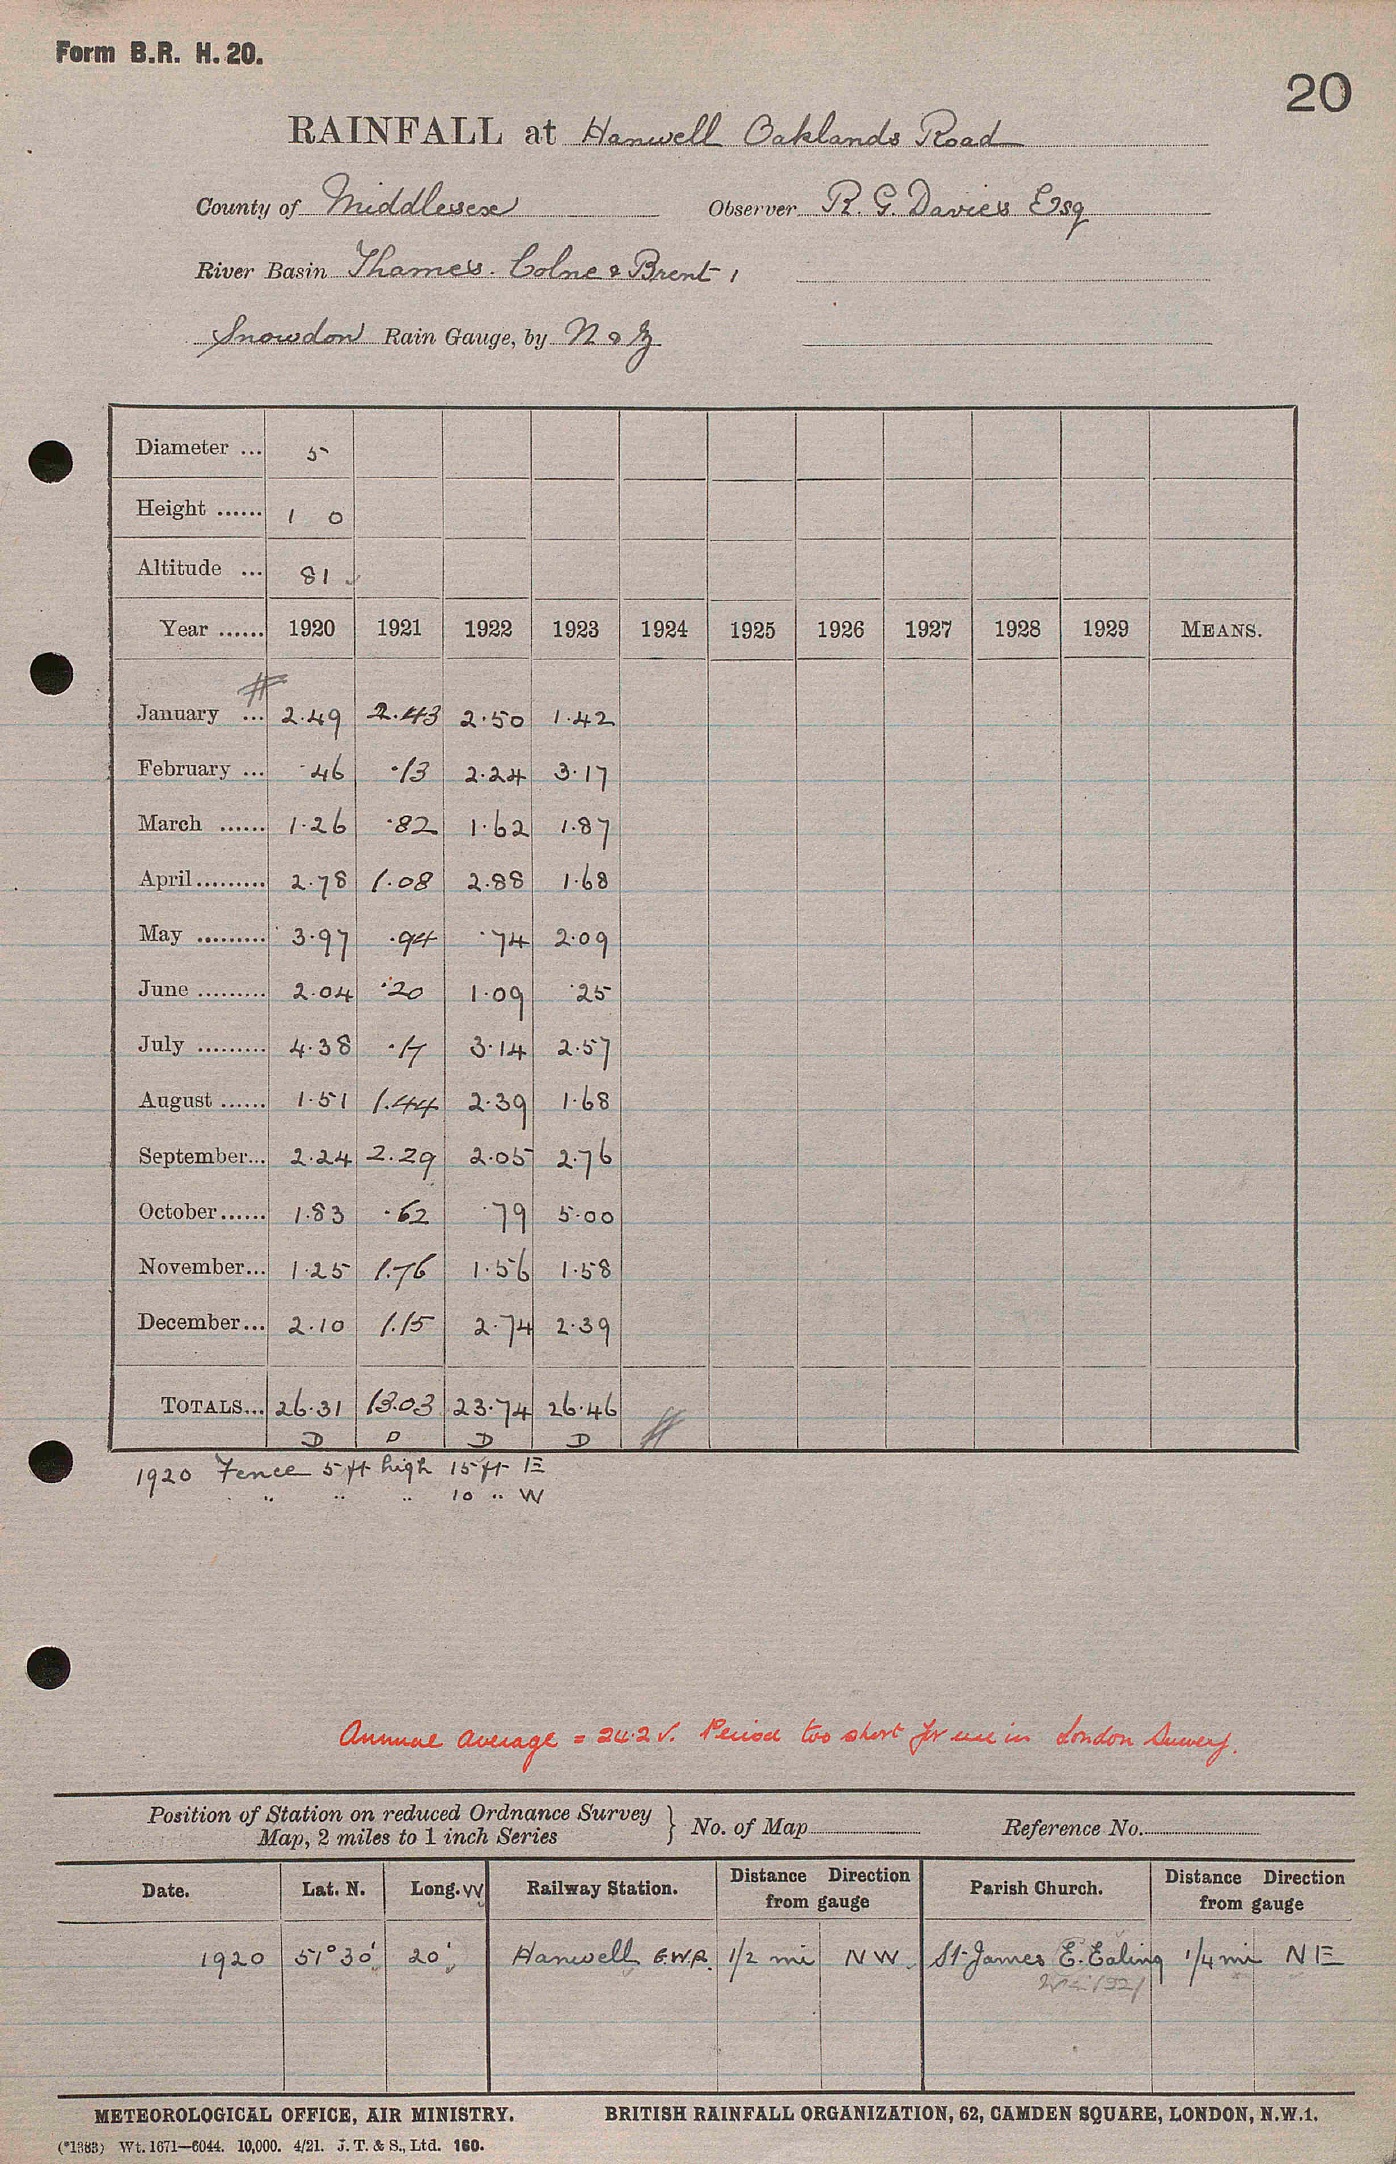 Form B.R. H. 20.
20
RAINFALL at Hanwell Oaklands Road
County of Middlesex Observer R. G. Davies Esq
River Basin Thames. Colne & Brent 1
Snowdon Rain Gauge, by N & Z
Diameter ... 5
Height ...... 1 0
Altitude ... 81
Year ...... 1920 1921 1922 1923 1924 1925 1926 1927 1928 1929 MEANS.
January ... 2.49 2.43 2.50 1.42
February ... .46 .13 2.24 3.17
March ...... 1.26 .82 1.62 1.87
April ......... 2.78 1.08 2.88 1.68
May ......... 3.97 .94 .74 2.09
June ......... 2.04 .20 1.09 .25
July ......... 4.38 .17 3.14 2.57
August ...... 1.51 1.44 2.39 1.68
September... 2.24 2.29 2.05 2.76
October...... 1.83 .62 .79 5.00
November... 1.25 1.76 1.56 1.58
December... 2.10 1.15 2.74 2.39
TOTALS... 26.31 13.03 23.74 26.46
D D D D
1920 Fence 5 ft high 15 ft E
" " " 10 " W
Annual average = 24.2 √. Period too short for use in London Survey.
Position of Station on reduced Ordnance Survey
Map, 2 miles to 1 inch Series } No. of Map Reference No.
Date. Lat. N. Long. W Railway Station. Distance Direction from gauge Parish Church. Distance Direction from gauge
1920 51° 30' 20' Hanwell G.W.R. 1/2 mi NW St James E. Ealing 1/4 mi NE
METEOROLOGICAL OFFICE, AIR MINISTRY. BRITISH RAINFALL ORGANIZATION, 62, CAMDEN SQUARE, LONDON, N.W.1.
(*1383) Wt. 1671—6044. 10,000. 4/21. J. T. & S., Ltd. 160.